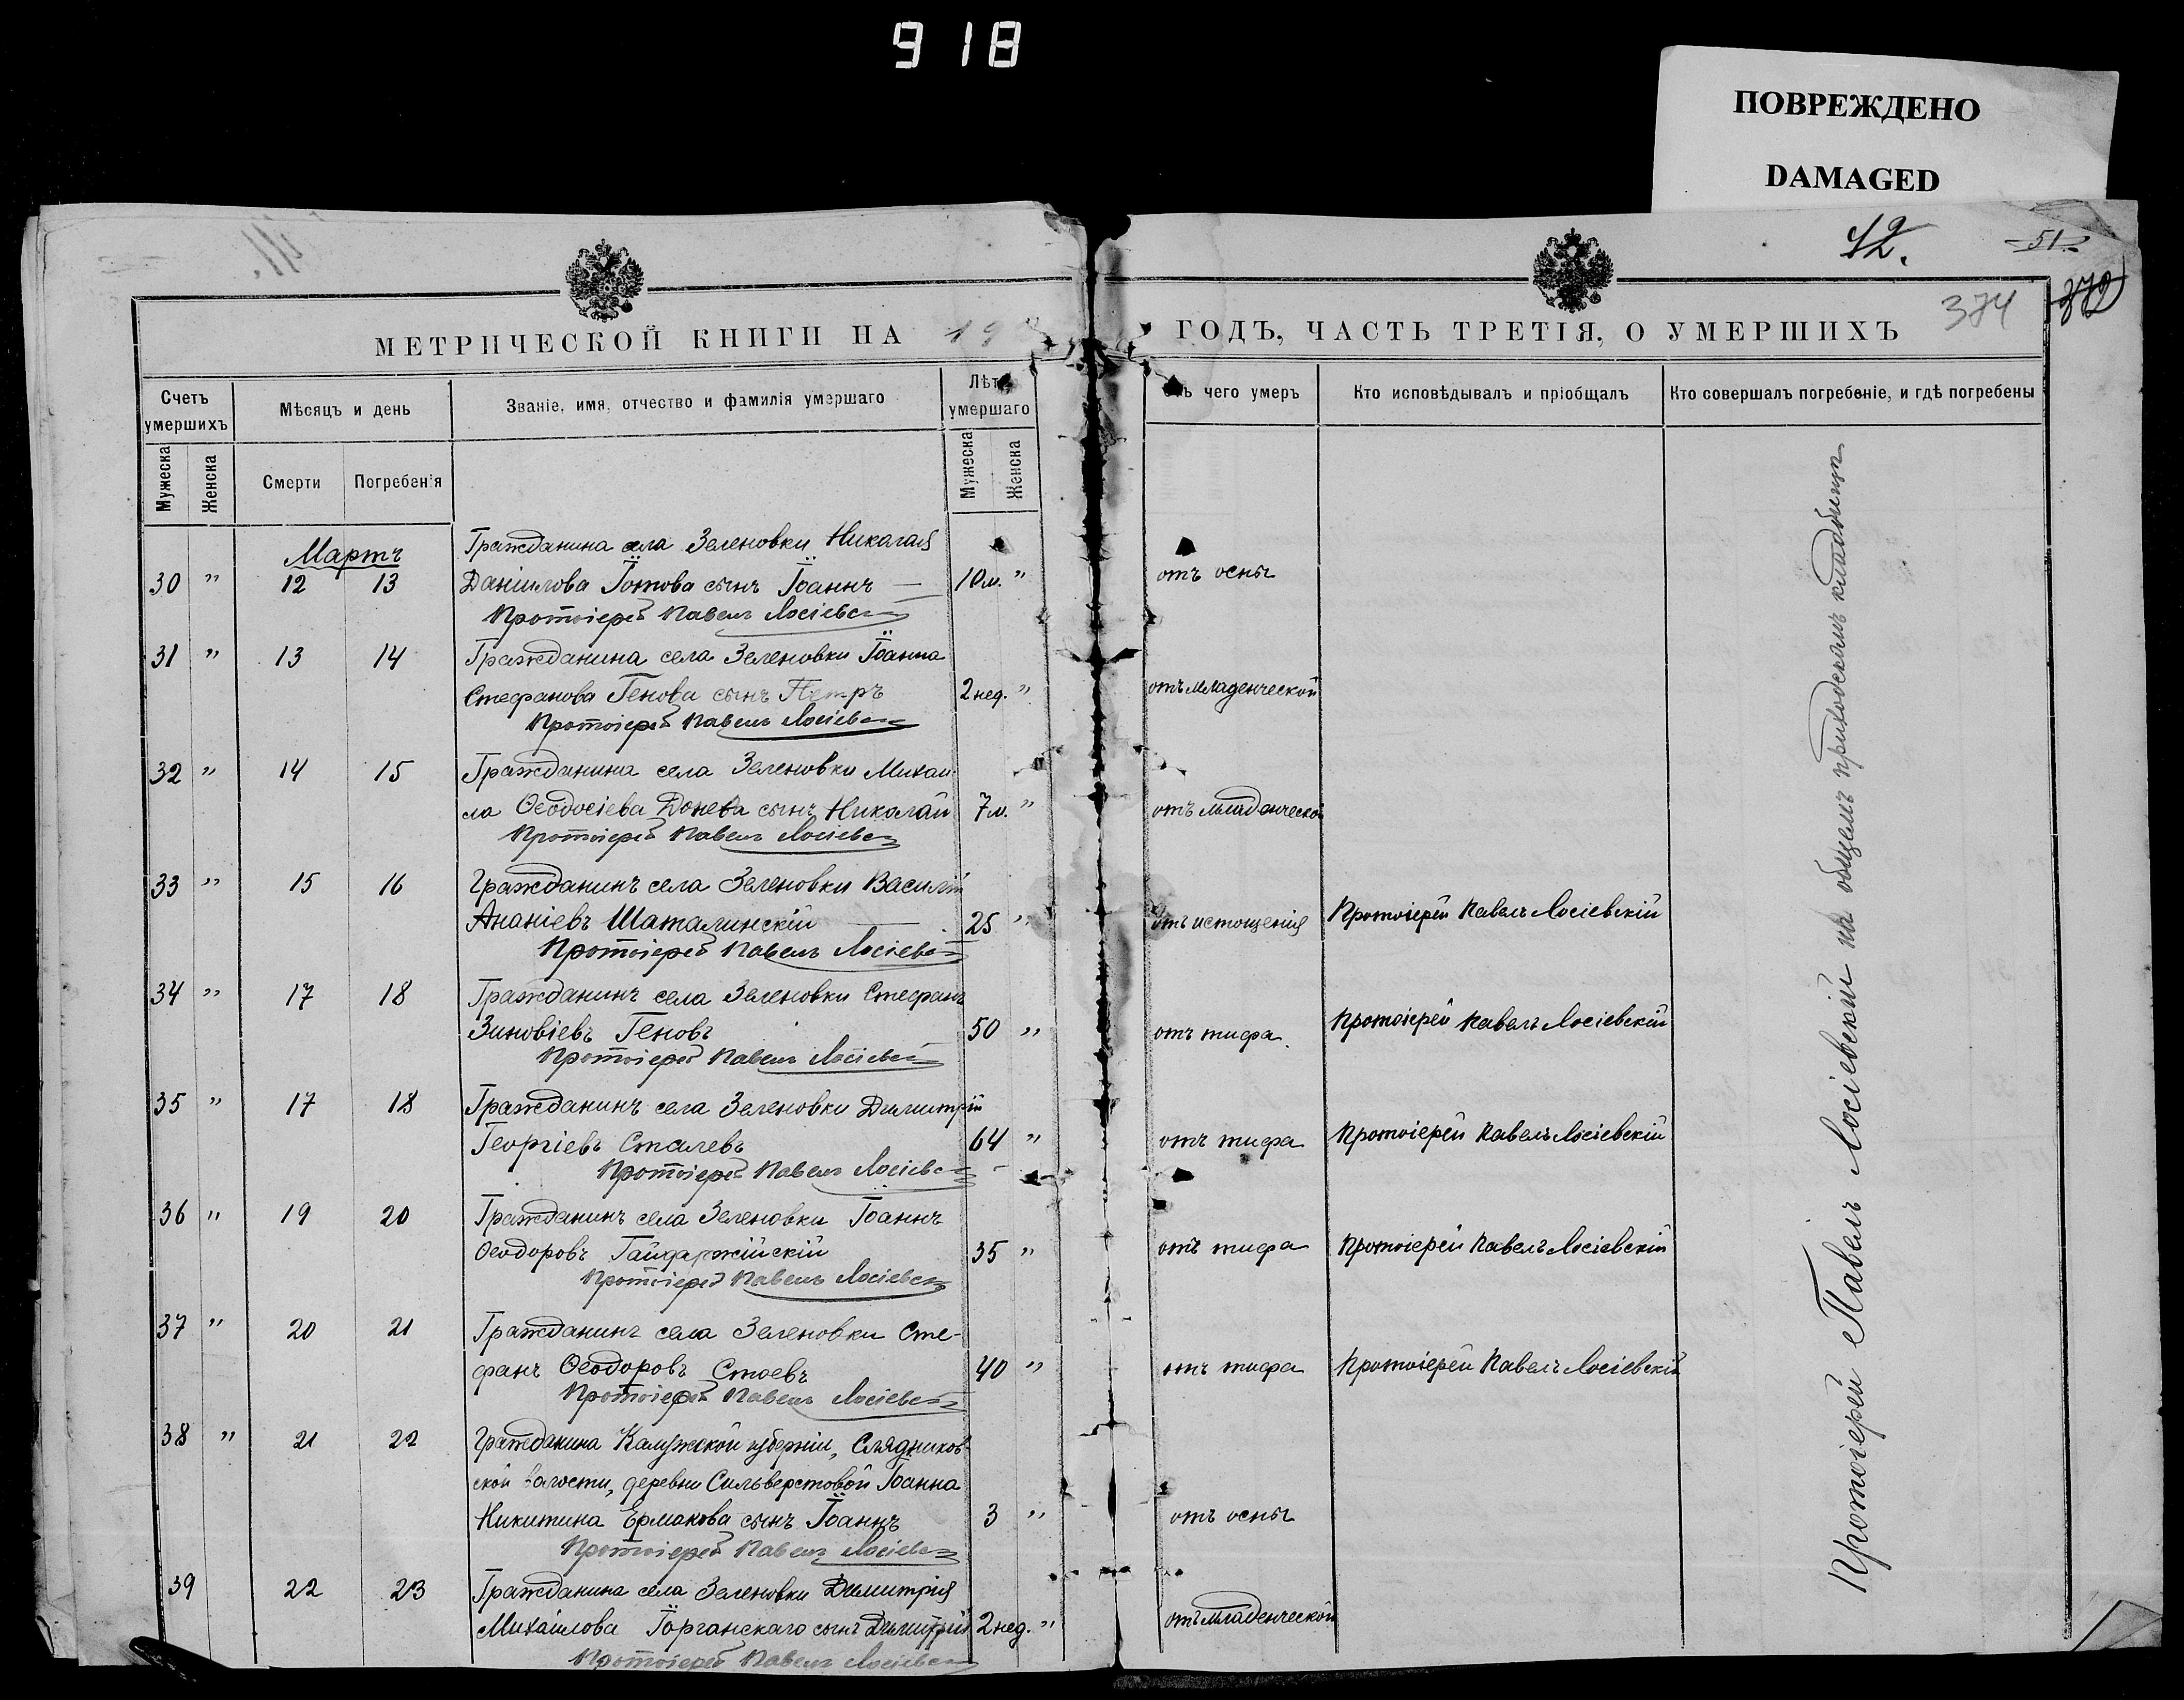 918
ПОВРЕЖДЕНО
DAMAGED
42.
51.
374
МЕТРИЧЕСКОЙ КНИГИ НА 19
ГОДЪ, ЧАСТЬ ТРЕТІЯ, О УМЕРШИХЪ
Счетъ умершихъ
Мѣсяцъ и день
Званіе, имя, отчество и фамилія умершаго
Лѣт умершаго
чего умеръ
Кто исповѣдывалъ и пріобщалъ
Кто совершалъ погребеніе, и гдѣ погребены
Мужеска Женска Смерти Погребенія Мужеска Женска
Мартъ
Гражданина села Зеленовки Николая
30 " 12 13 Даніилова Іотова сынъ Іоаннъ — 10 м. " отъ оспы
Протоіерей Павелъ Лосіевскій
31 " 13 14 Гражданина села Зеленовки Іоанна
Стефанова Генова сынъ Петръ 2 нед. " отъ младенческой
Протоіерей Павелъ Лосіевскій
32 " 14 15 Гражданина села Зеленовки Михаи
ла Ѳеодосіева Донева сынъ Николай 7 м. " отъ младенческой
Протоіерей Павелъ Лосіевскій
33 " 15 16 Гражданинъ села Зеленовки Василій
Ананіевъ Шаталинскій — 25 " отъ истощенія Протоіерей Павелъ Лосіевскій
Протоіерей Павелъ Лосіевскій
34 " 17 18 Гражданинъ села Зеленовки Стефанъ
Зиновіевъ Геновъ 50 " отъ тифа. Протоіерей Павелъ Лосіевскій
Протоіерей Павелъ Лосіевскій
35 " 17 18 Гражданинъ села Зеленовки Димитрій
Георгіевъ Сталевъ 64 " отъ тифа Протоіерей Павелъ Лосіевскій
Протоіерей Павелъ Лосіевскій
36 " 19 20 Гражданинъ села Зеленовки Іоаннъ
Ѳеодоровъ Гайдаржійскій 35 " отъ тифа Протоіерей Павелъ Лосіевскій
Протоіерей Павелъ Лосіевскій
37 " 20 21 Гражданинъ села Зеленовки Сте-
фанъ Ѳеодоровъ Стоевъ 40 " отъ тифа Протоіерей Павелъ Лосіевскій
Протоіерей Павелъ Лосіевскій
38 " 21 22 Гражданина Калужской губерніи,
ской волости, деревни Сильверстовой Іоанна
Никитина Ермакова сынъ Іоаннъ 3 " отъ оспы
Протоіерей Павелъ Лосіевскій
39 22 23 Гражданина села Зеленовки Димитрія
Михайлова Іорганскаго сынъ Димитрій 2 нед. " отъ младенческой
Протоіерей Павелъ Лосіевскій
Протоіерей Павелъ Лосіевскій на общемъ приходскомъ кладбищѣ